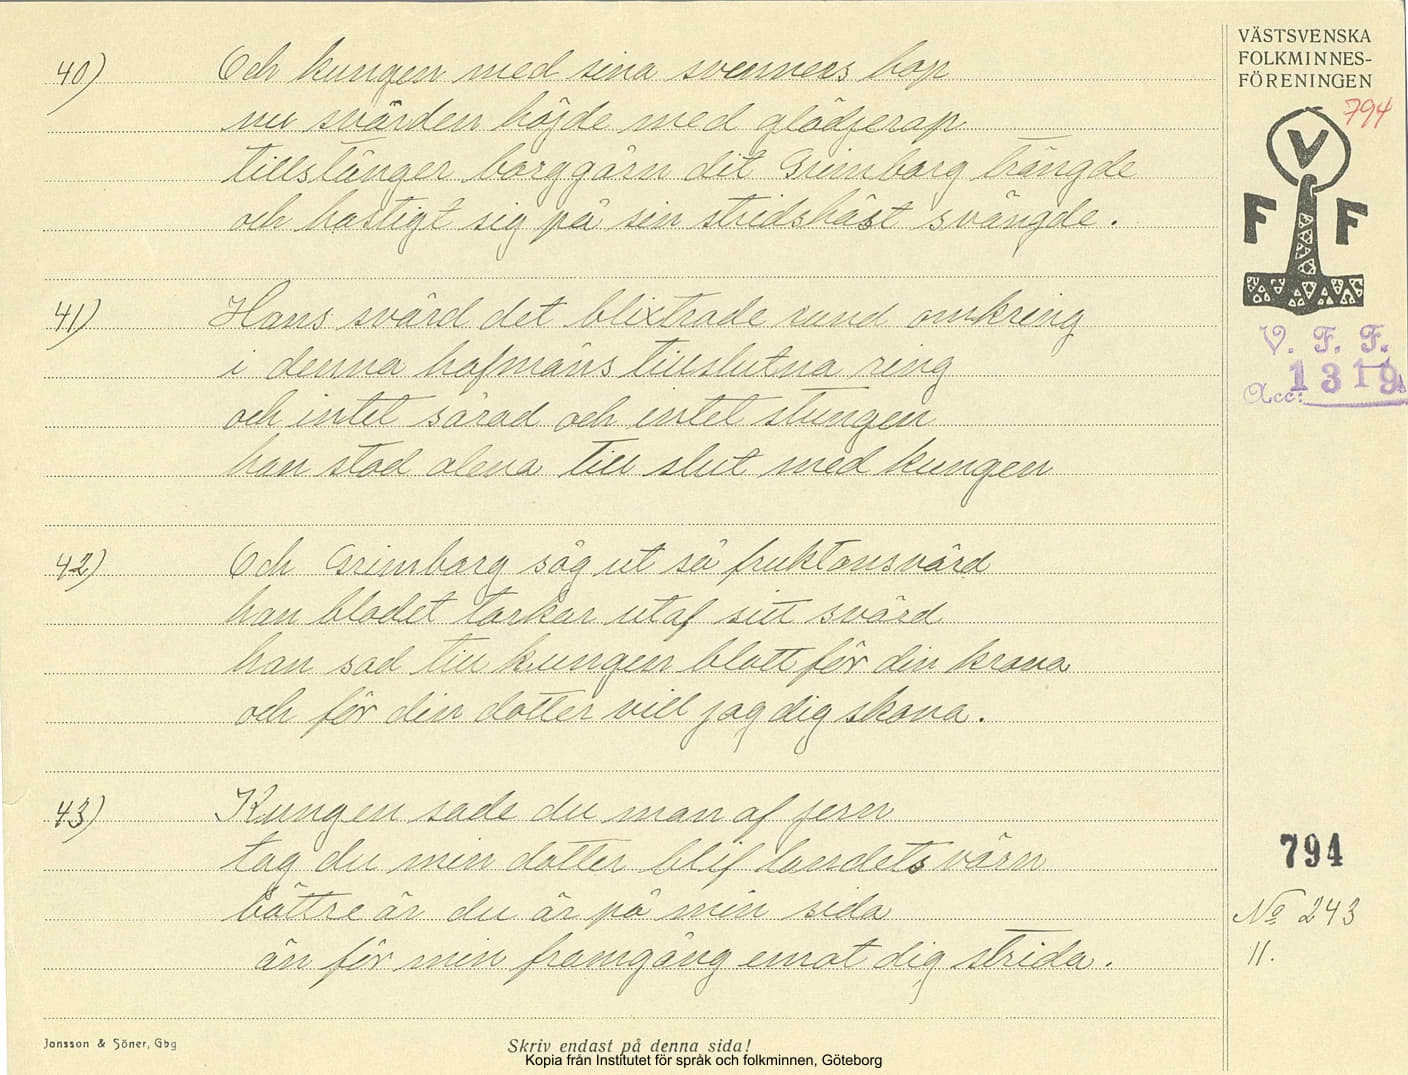 VÄSTSVENSKA
FOLKMINNES-
FÖRENINGEN
794
V
F F
V. F. F.
Acc: 1319
40) Och kungen med sina svenners hop
nu svärden höjde med glädjerop
tillstänger borggårn dit Grimborg trängde
och hastigt sig på sin stridshäst svängde.
41) Hans svärd det blixtrade rund omkring
i denna hofmäns tillslutna ring
och intet sårad och intet stungen
han stod alena till slut med kungen
42) Och Grimborg såg ut så fruktansvärd
han blodet torkar utaf sitt svärd
han sad till kungen blott för din krona
och för din dotter vill jag dig skona.
43) Kungen sade du man af jern
tag du min dotter blif landets värn
bättre är du är på min sida
än för min framgång emot dig strida.
794
No 243
11.
Jonsson & Söner, Gbg
Skriv endast på denna sida!
Kopia från Institutet för språk och folkminnen, Göteborg